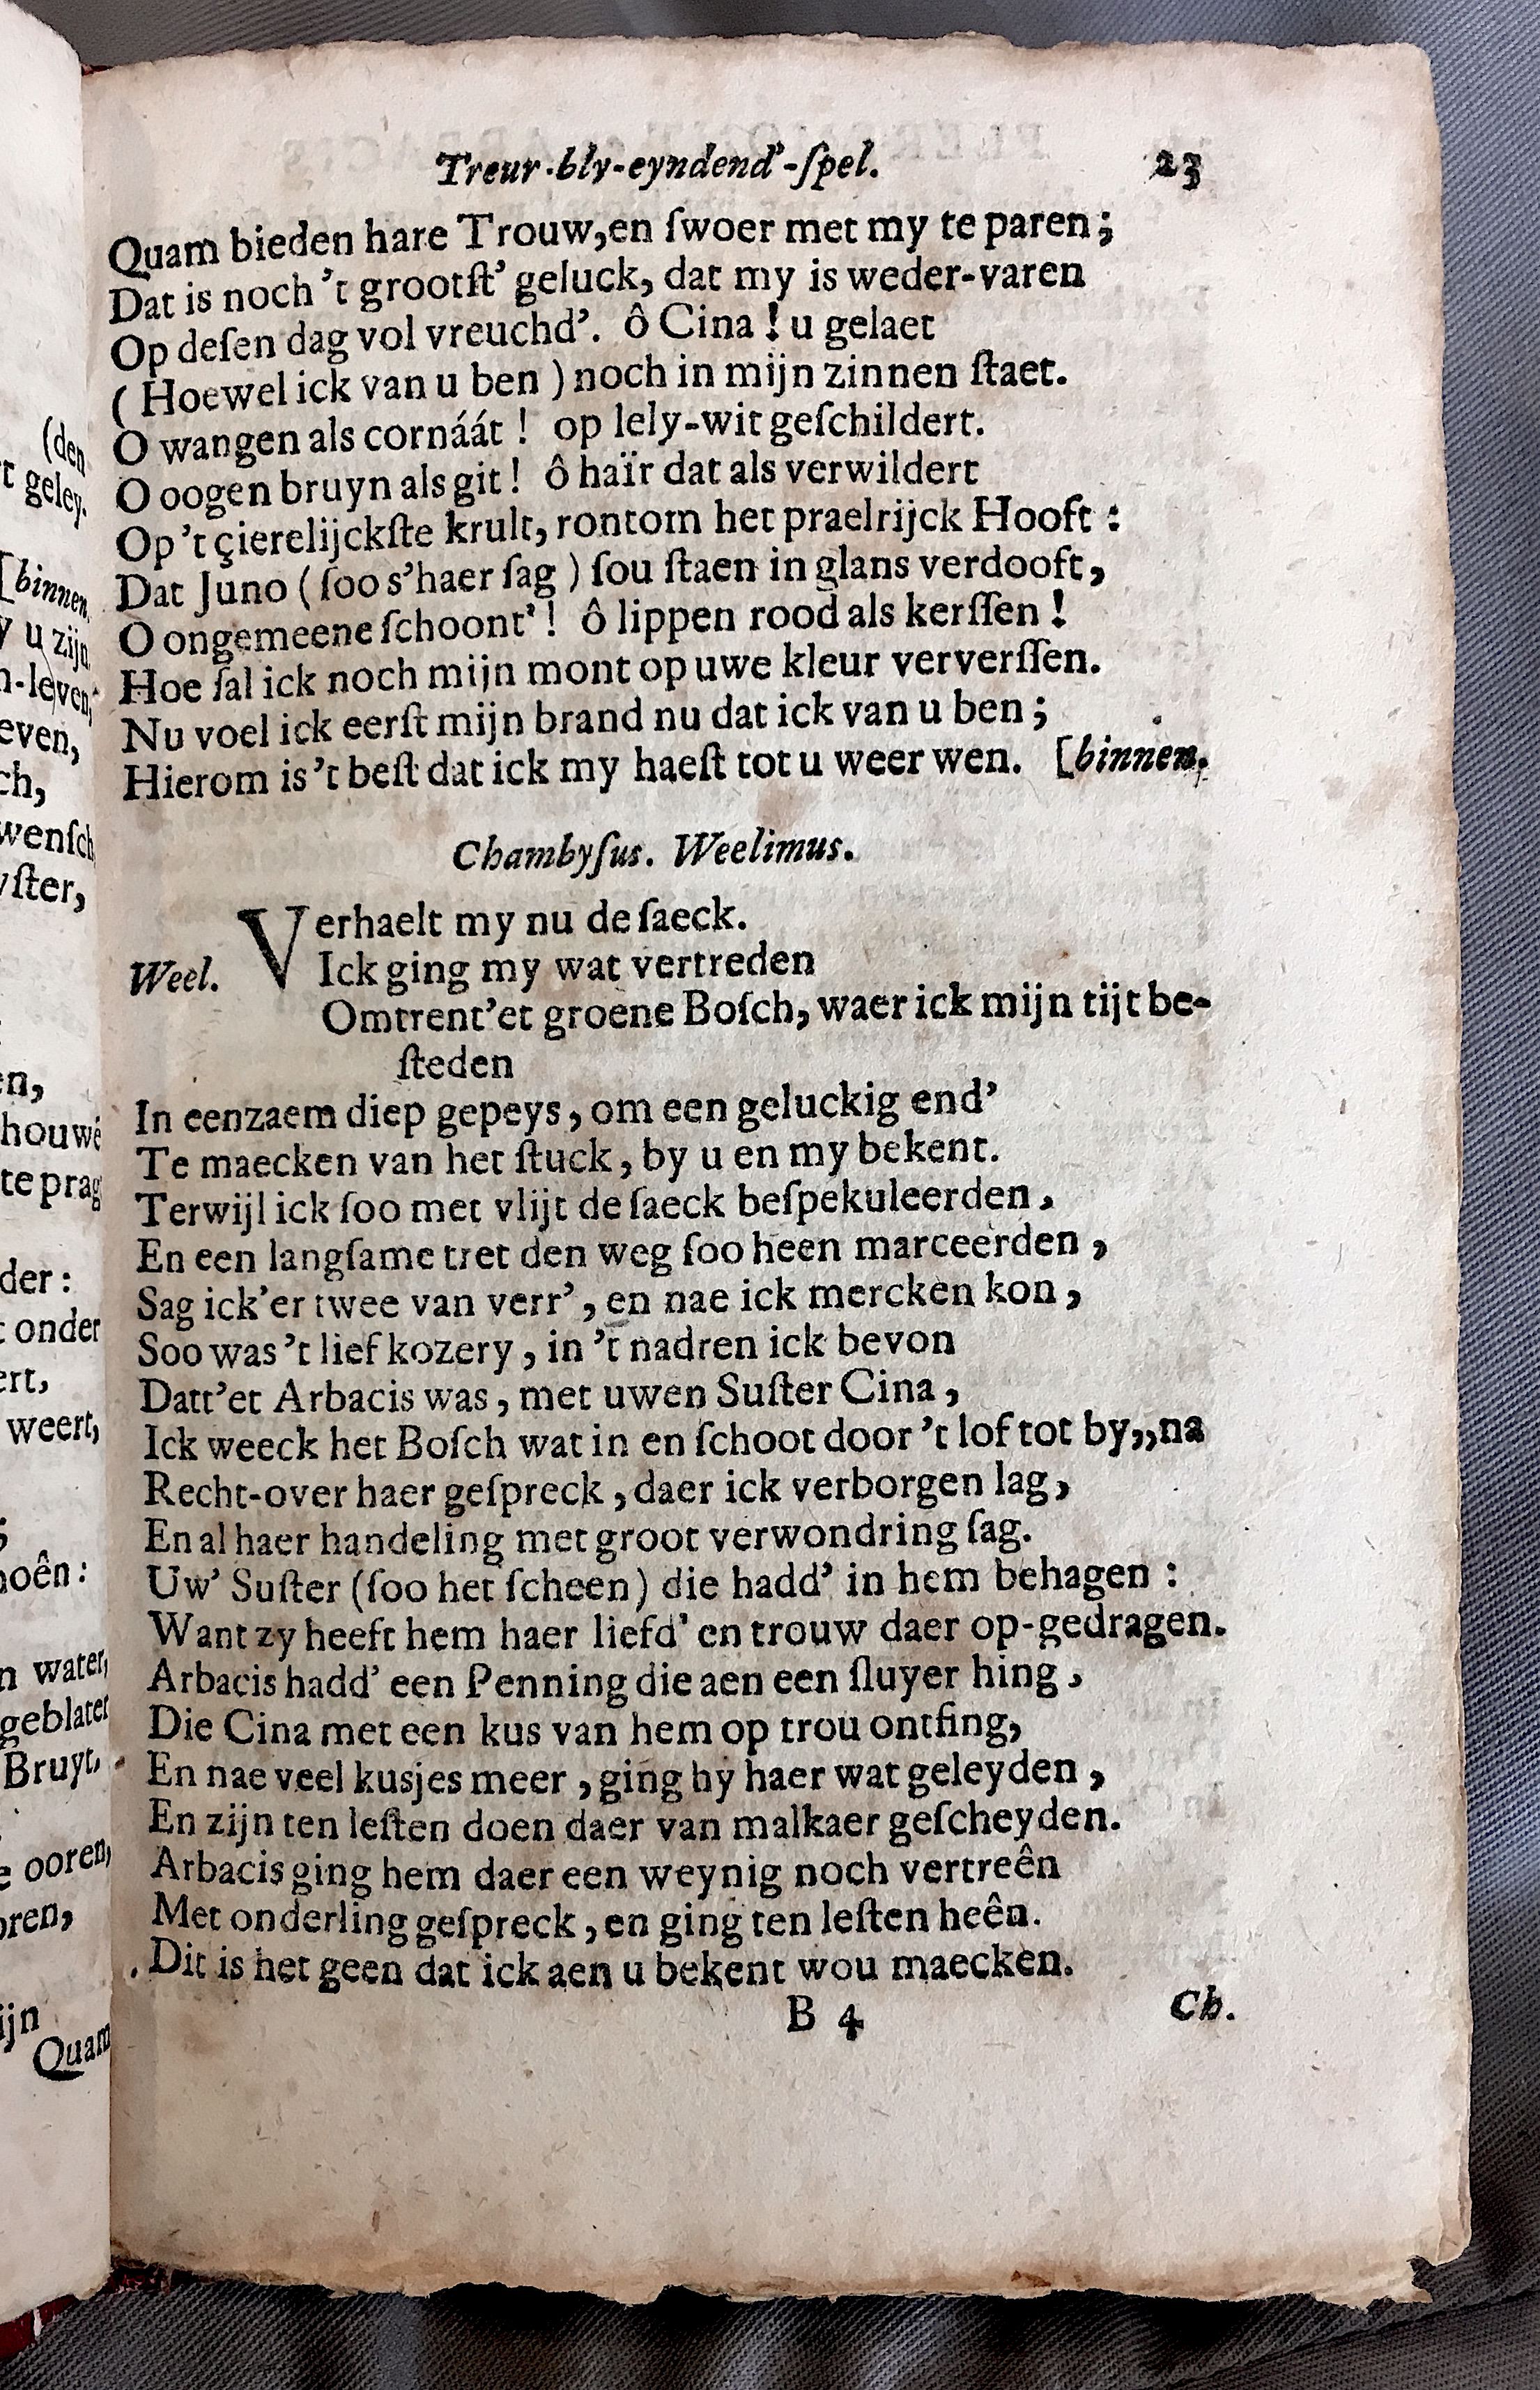 Treur-bly-eyndend'-ſpel. 23
Quam bieden hare Trouw,en ſwoer met my te paren;
Dat is noch 't grootſt' geluck, dat my is weder-varen
Op deſen dag vol vreuchd'. ô Cina ! u gelaet
( Hoewel ick van u ben ) noch in mijn zinnen ſtaet.
O wangen als cornáát ! op lely-wit geſchildert.
O oogen bruyn als git ! ô haïr dat als verwildert
Op 't çierelijckſte krult, rontom het praelrijck Hooft :
Dat Juno ( ſoo s'haer ſag ) ſou ſtaen in glans verdooft,
O ongemeene ſchoont' ! ô lippen rood als kerſſen !
Hoe ſal ick noch mijn mont op uwe kleur ververſſen.
Nu voel ick eerſt mijn brand nu dat ick van u ben ;
Hierom is 't beſt dat ick my haeſt tot u weer wen. [binnen.
Chambyſus. Weelimus.
Verhaelt my nu de ſaeck.
Weel. Ick ging my wat vertreden
Omtrent'et groene Boſch, waer ick mijn tijt be-
ſteden
In eenzaem diep gepeys, om een geluckig end'
Te maecken van het ſtuck, by u en my bekent.
Terwijl ick ſoo met vlijt de ſaeck beſpekuleerden,
En een langſame tret den weg ſoo heen marceerden,
Sag ick'er twee van verr', en nae ick mercken kon,
Soo was 't lief kozery, in 't nadren ick bevon
Datt'et Arbacis was, met uwen Suſter Cina,
Ick weeck het Boſch wat in en ſchoot door 't lof tot by,,na
Recht-over haer geſpreck, daer ick verborgen lag,
En al haer handeling met groot verwondring ſag.
Uw' Suſter (ſoo het ſcheen) die hadd' in hem behagen :
Want zy heeft hem haer liefd' en trouw daer op-gedragen.
Arbacis hadd' een Penning die aen een ſluyer hing,
Die Cina met een kus van hem op trou ontfing,
En nae veel kusjes meer, ging hy haer wat geleyden,
En zijn ten leſten doen daer van malkaer geſcheyden.
Arbacis ging hem daer een weynig noch vertreên
Met onderling geſpreck, en ging ten leſten heên.
Dit is het geen dat ick aen u bekent wou maecken.
B 4 Ch.
(den
't geley.
[binnen.
u zijn
leven;
even,
ch,
wenſch
ſter,
en,
houwē
te prag
der :
onder
ert,
weert,
oên :
water,
geblater
Bruyt,
ooren,
oren,
ijn
Quam